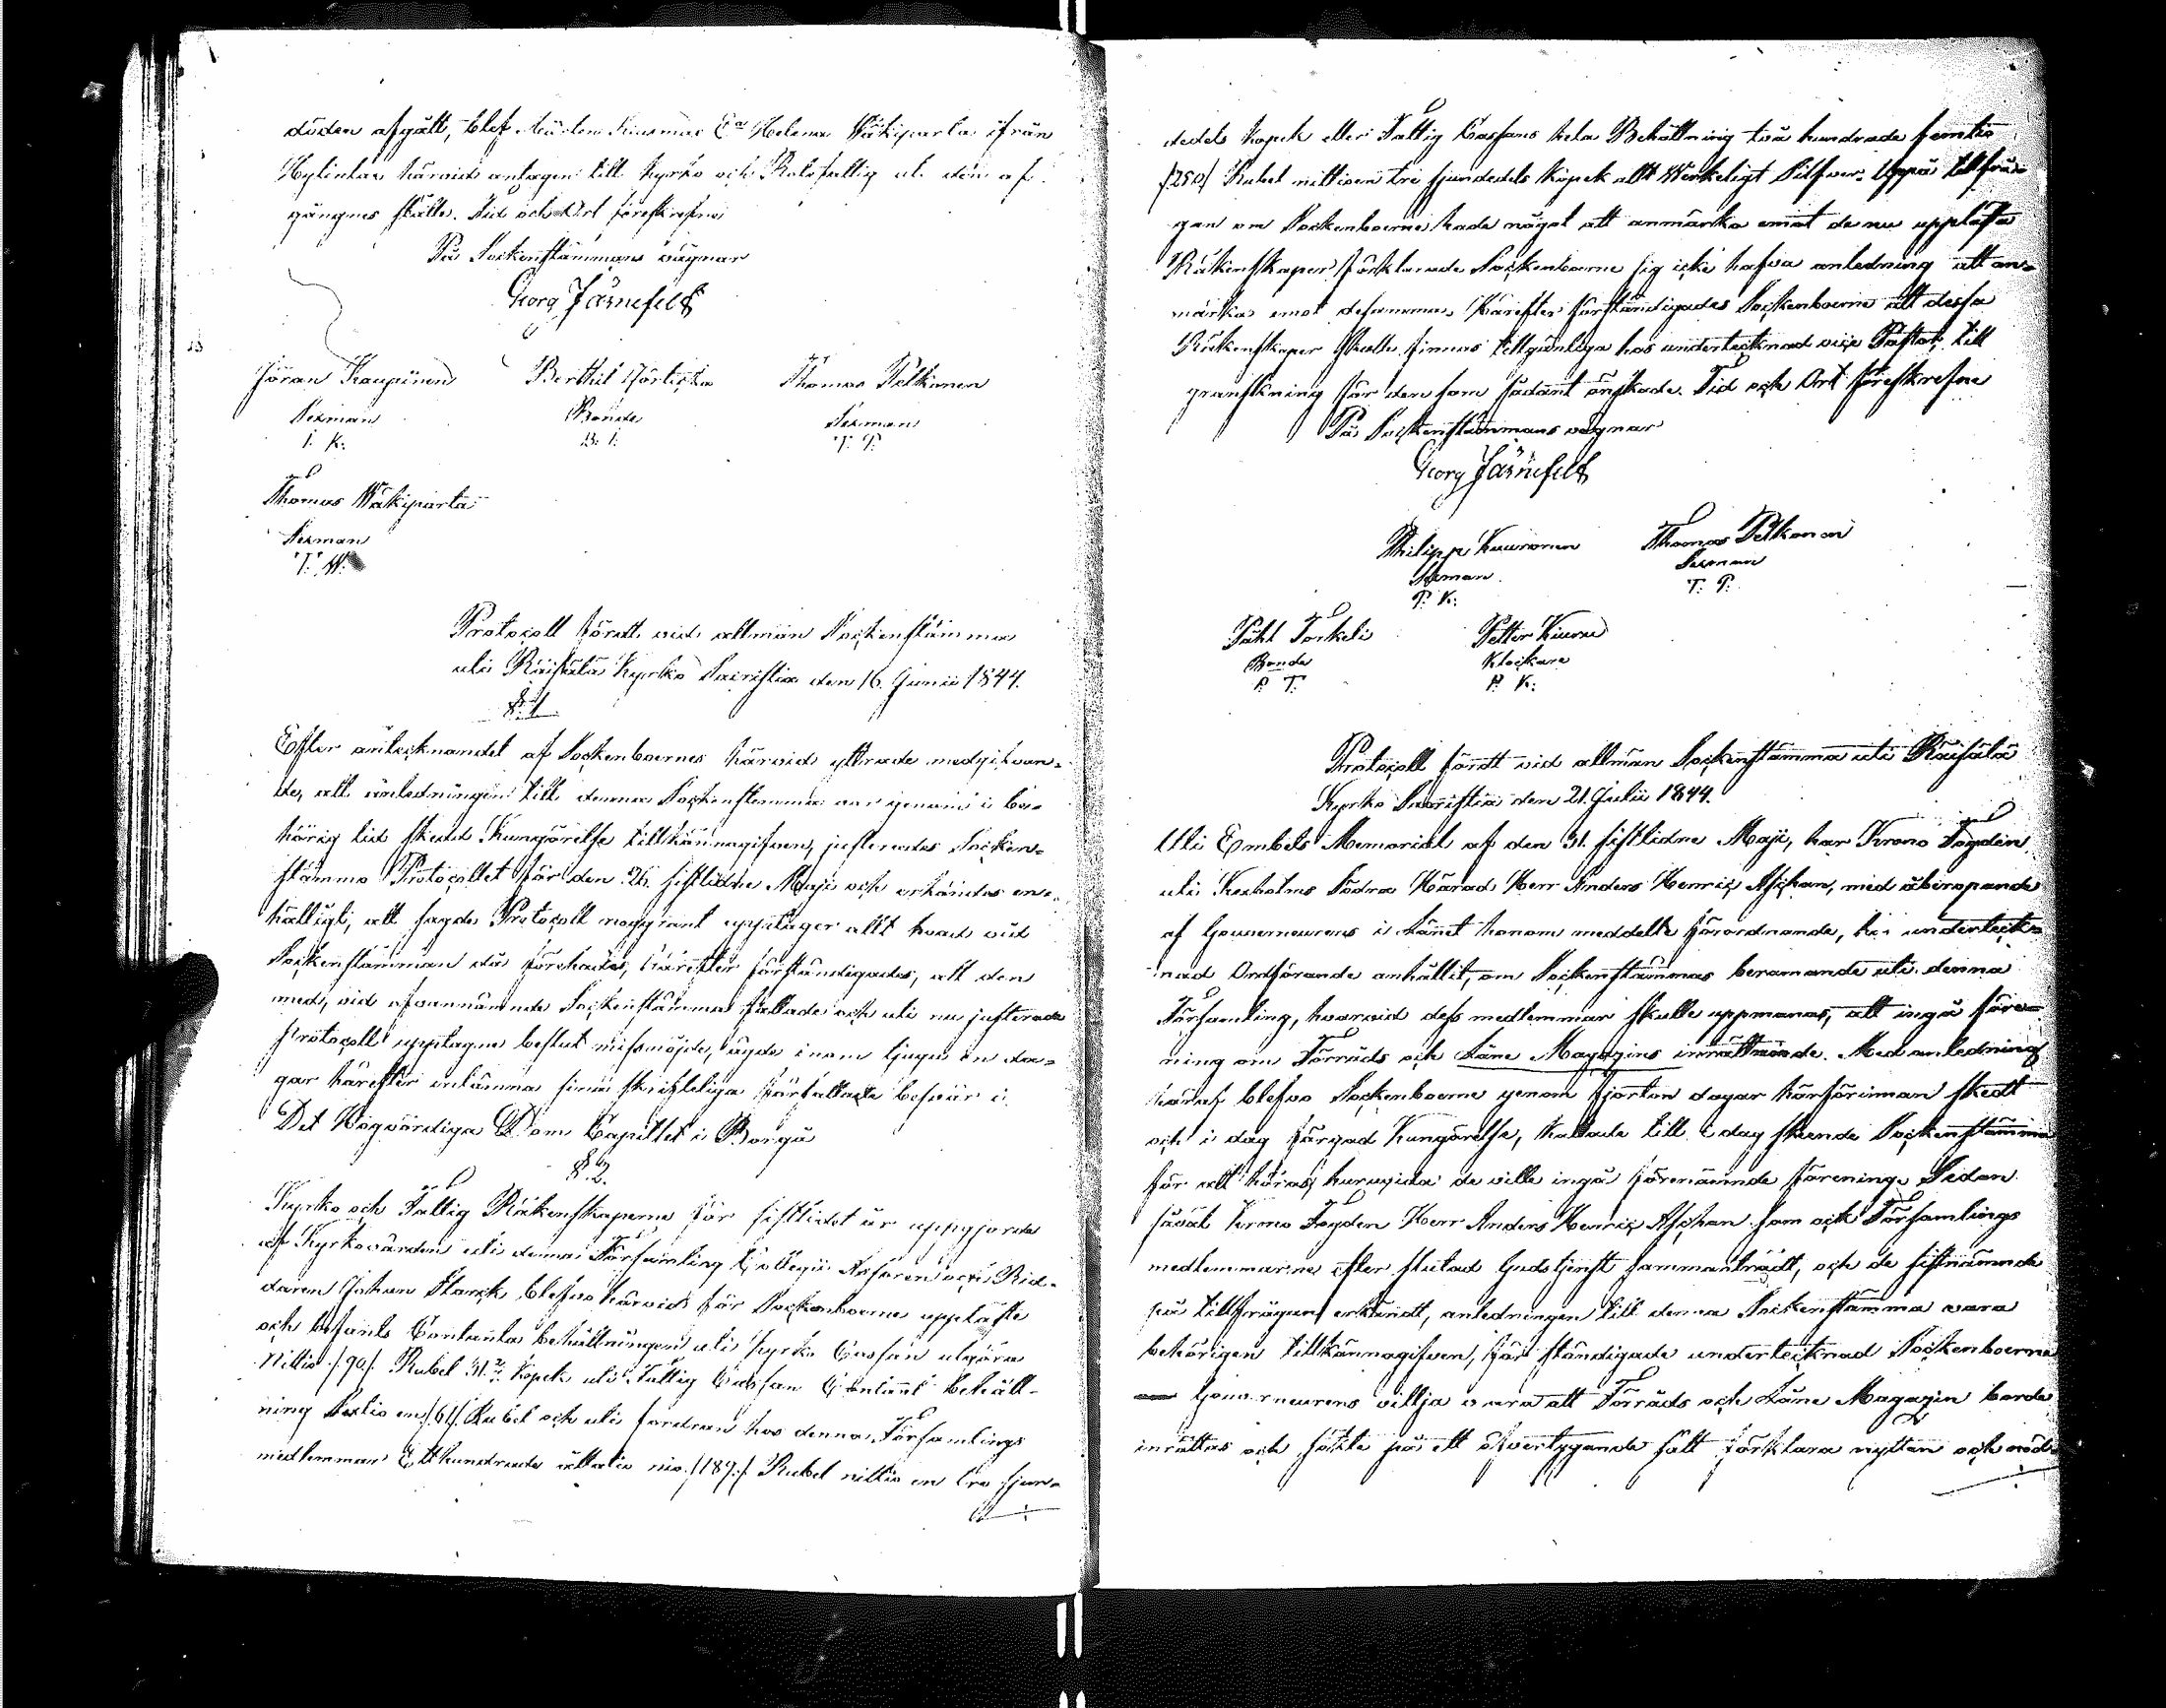 döden afgått, blef Helena Wäkiparta ifrån
härvid antagen till Kyrko och Rotefattig uti den af-
gångnes ställe. Tid och Ort föreskrefne
På Sockenstämmans vägnar
Georg Järnefelt
Göran Kaupinen Berthil Thomas Pelkonen
Sexman Bonde Sexman
B. T. P.
Thomas Wäkiparta
Sexman
T. W.
Protocoll fördt vid allmän Sockenstämma
uti Räisälä Kyrko Sacristia den 16. Junii 1844.
§ 1.
Efter antecknandet af Sockenboernes härvid yttrade medgifvan-
de, att anledningen till denna Sockenstemma var genom i be-
hörig tid skedd Kungörelse tillkännagifven, justerades Socken-
stämmo Protocollet för den 26. sistlidne Maji och erkändes en-
hälligt, att sagde Protocoll noggrant upptager allt hvad vid
Sockenstämman då förehades, härefter förständigades, att den
med, vid ofvannämnde Sockenstämma fattade och uti nu justerade
Protocoll upptagne beslut missnöjde, ägde inom tjugu en da-
gar härefter inlämna sine skrifteliga författade besvär i
Det Högvördiga Dom Capitlet i Borgå
§ 2.
Kyrko och Fattig Räkenskaperne för sistlidet år uppgjorde
af Kyrkovärden uti denna Församling Collegii Assesoren och Rid-
daren Johan Starck blefvo härvid för Sockenboerne uppläste
och befants Contanta behållningen uti Kyrko Cassan utgöra
Nittio /90/ Rubel 31 2/7 Kopek uti Fattig Cassan Contant behåll-
ning Sextio en /61/ Rubel och uti fordran hos denna Församlings
medlemmar Etthundrade åttatio nio /189/ Rubel nittio en tre sjun-
dedels kopek eller Fattig Cassans hela Behållning två hundrade femtio
/250/ Rubel nittioen tre sjundedels kopek allt Wirkeligt Silfver. Uppå tillfrå-
gan om Sockenboerne hade något att anmärka emot de nu upplästa
Räkenskaper förklarade Sockenboerne sig icke hafva anledning att an-
märka emot desamma. Härefter förständigades Sockenboerne att dessa
Räkenskaper skulle finnas tillgänliga hos undertecknad vice Pastor, till
granskning för den som sådant önskade. Tid och Ort föreskrefne
På Sockenstämmans vägnar
Georg Järnefelt
Philipp Kuuronen Thomas Pelkonen
Sexman Sexman
P. K. T. P.
Påhl Torkeli Petter Kiuru
Bonde Klockare
P. T. P. K.
Protocoll fördt vid allmän Sockenstämma uti Räisälä
Kyrko Sacristia den 21. Julii 1844.
Uti Embets Memorial af den 31. sistlidne Maji, har Krono Fogden
uti Kexholms Södra Härad Herr Anders Henric Aschan, med åberopande
af Gouverneurens i Länet honom meddelte förordnande, hos underteck-
nad Ordförande anhållit, om Sockenstämmas beramande uti denna
Församling, hvarvid dess medlemmar skulle uppmanas, att ingå före-
ning om Förråds och Låne Magazins inrättande. Med anledning
häraf blefvo Sockenboerne genom fjorton dagar härförinnan skedt
och i dag förgad Kungörelse, kallade till i dag skeende Sockenstämma
för att höras, huruvida de ville ingå förenämnde förening. Sedan
såväl Krono Fogden Herr Anders Henric Aschan som och Församlings
medlemmarne efter slutad Gudstjenst sammanträdt, och de sistnämnde
på tillfrågan erkändt, anledningen till denna Sockenstämma vara
behörigen tillkännagifven, förständigade undertecknad Sockenboerne
Gouverneurens villja vara att Förråds och Låne Magazin borde
inrättas och sökte på ett öfvertygande sätt förklara nyttan och nöd-